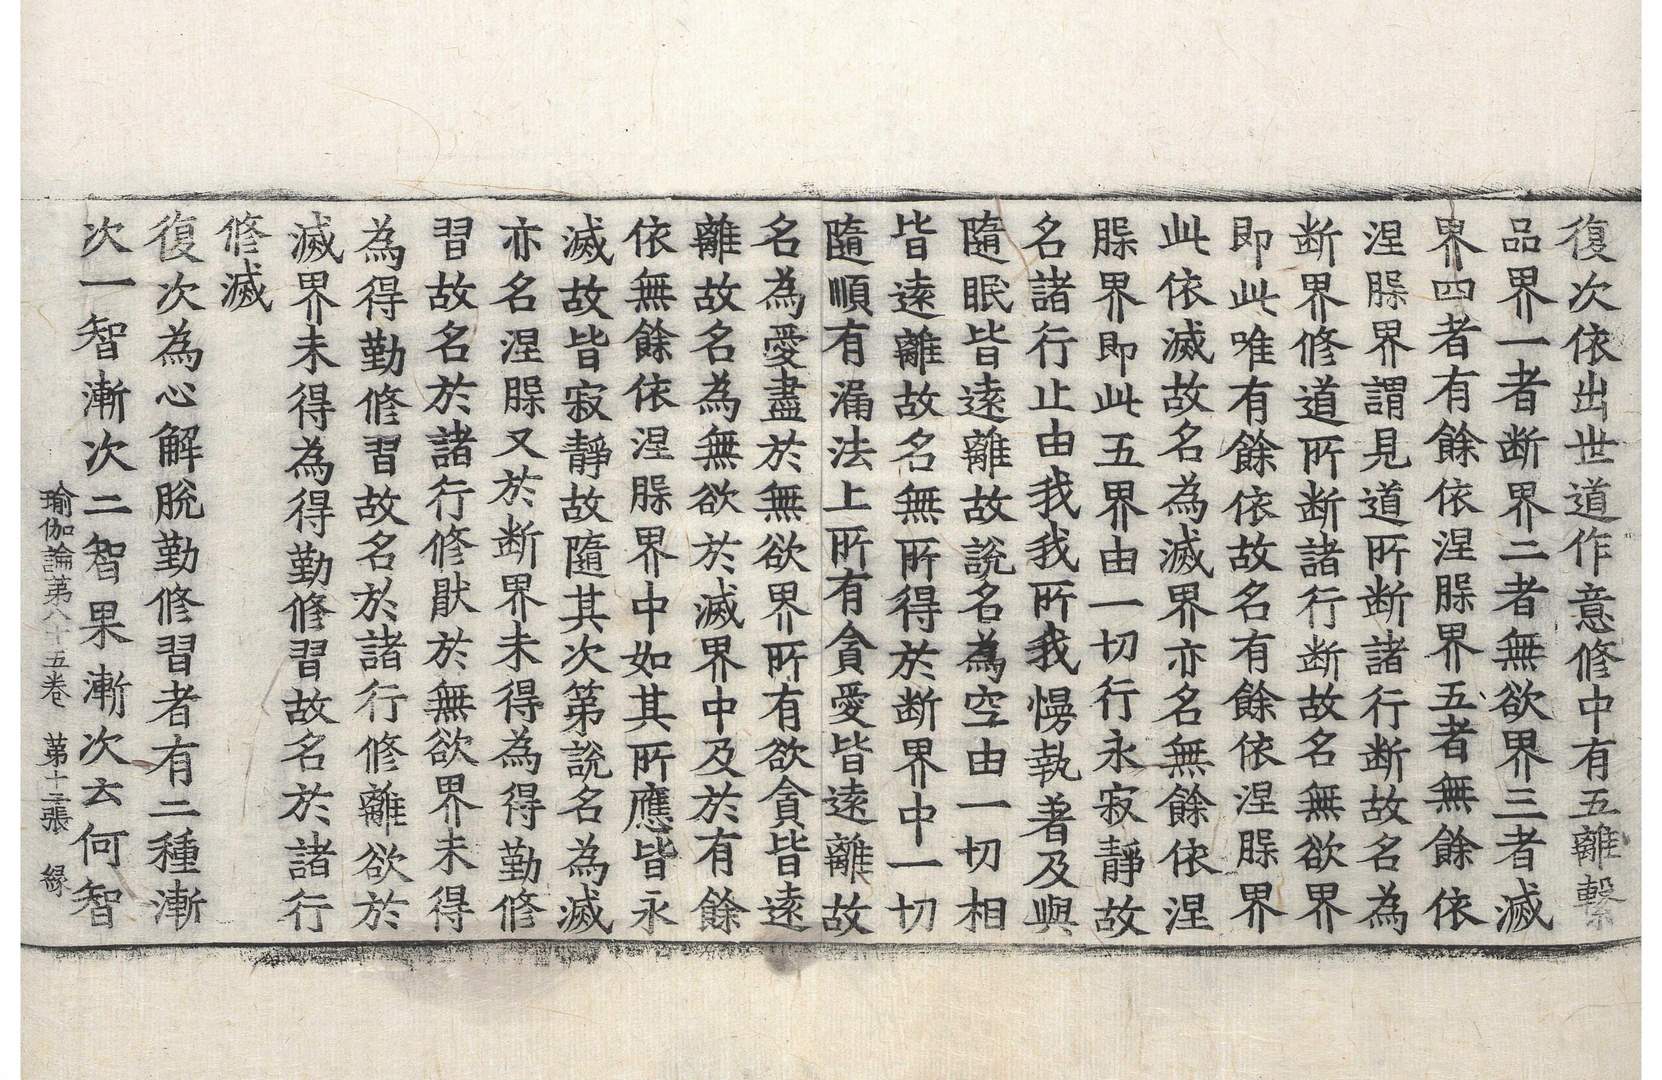 復次依出世道作意修中有五離繫
品界一者断界二者無欲界三者滅
界四者有餘依涅槃界五者無餘依
涅槃界謂見道所断諸行断故名為
断界修道所断諸行断故名無欲界
即此唯有餘依故名有餘依涅槃界
此依滅故名為滅界亦名無餘依涅
槃界即此五界由一切行永寂靜故
名諸行止由我我所我慢執著及與
隨眠皆遠離故說名為空由一切相
皆遠離故名無所得於断界中一切
隨順有漏法上所有貪愛皆遠離故
名為愛盡於無欲界所有欲貪皆遠
離故名為無欲於滅界中及於有餘
依無餘依涅槃界中如其所應皆永
滅故皆寂靜故隨其次第說名為滅
亦名涅槃又於断界未得為得勤修
習故名於諸行修猒於無欲界未得
為得勤修習故名於諸行修離欲於
滅界未得為得勤修習故名於諸行
修滅
復次為心解脫勤修習者有二種漸
次一智漸次二智果漸次云何智
瑜伽論第八十五卷 第十二張 緑